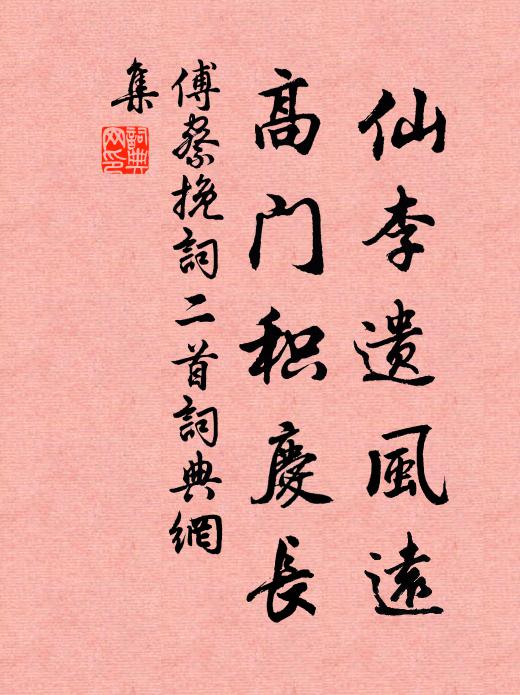 仙李遗風遠
高门积慶長
傅察挽詞二首詞典網
集
詞典网印